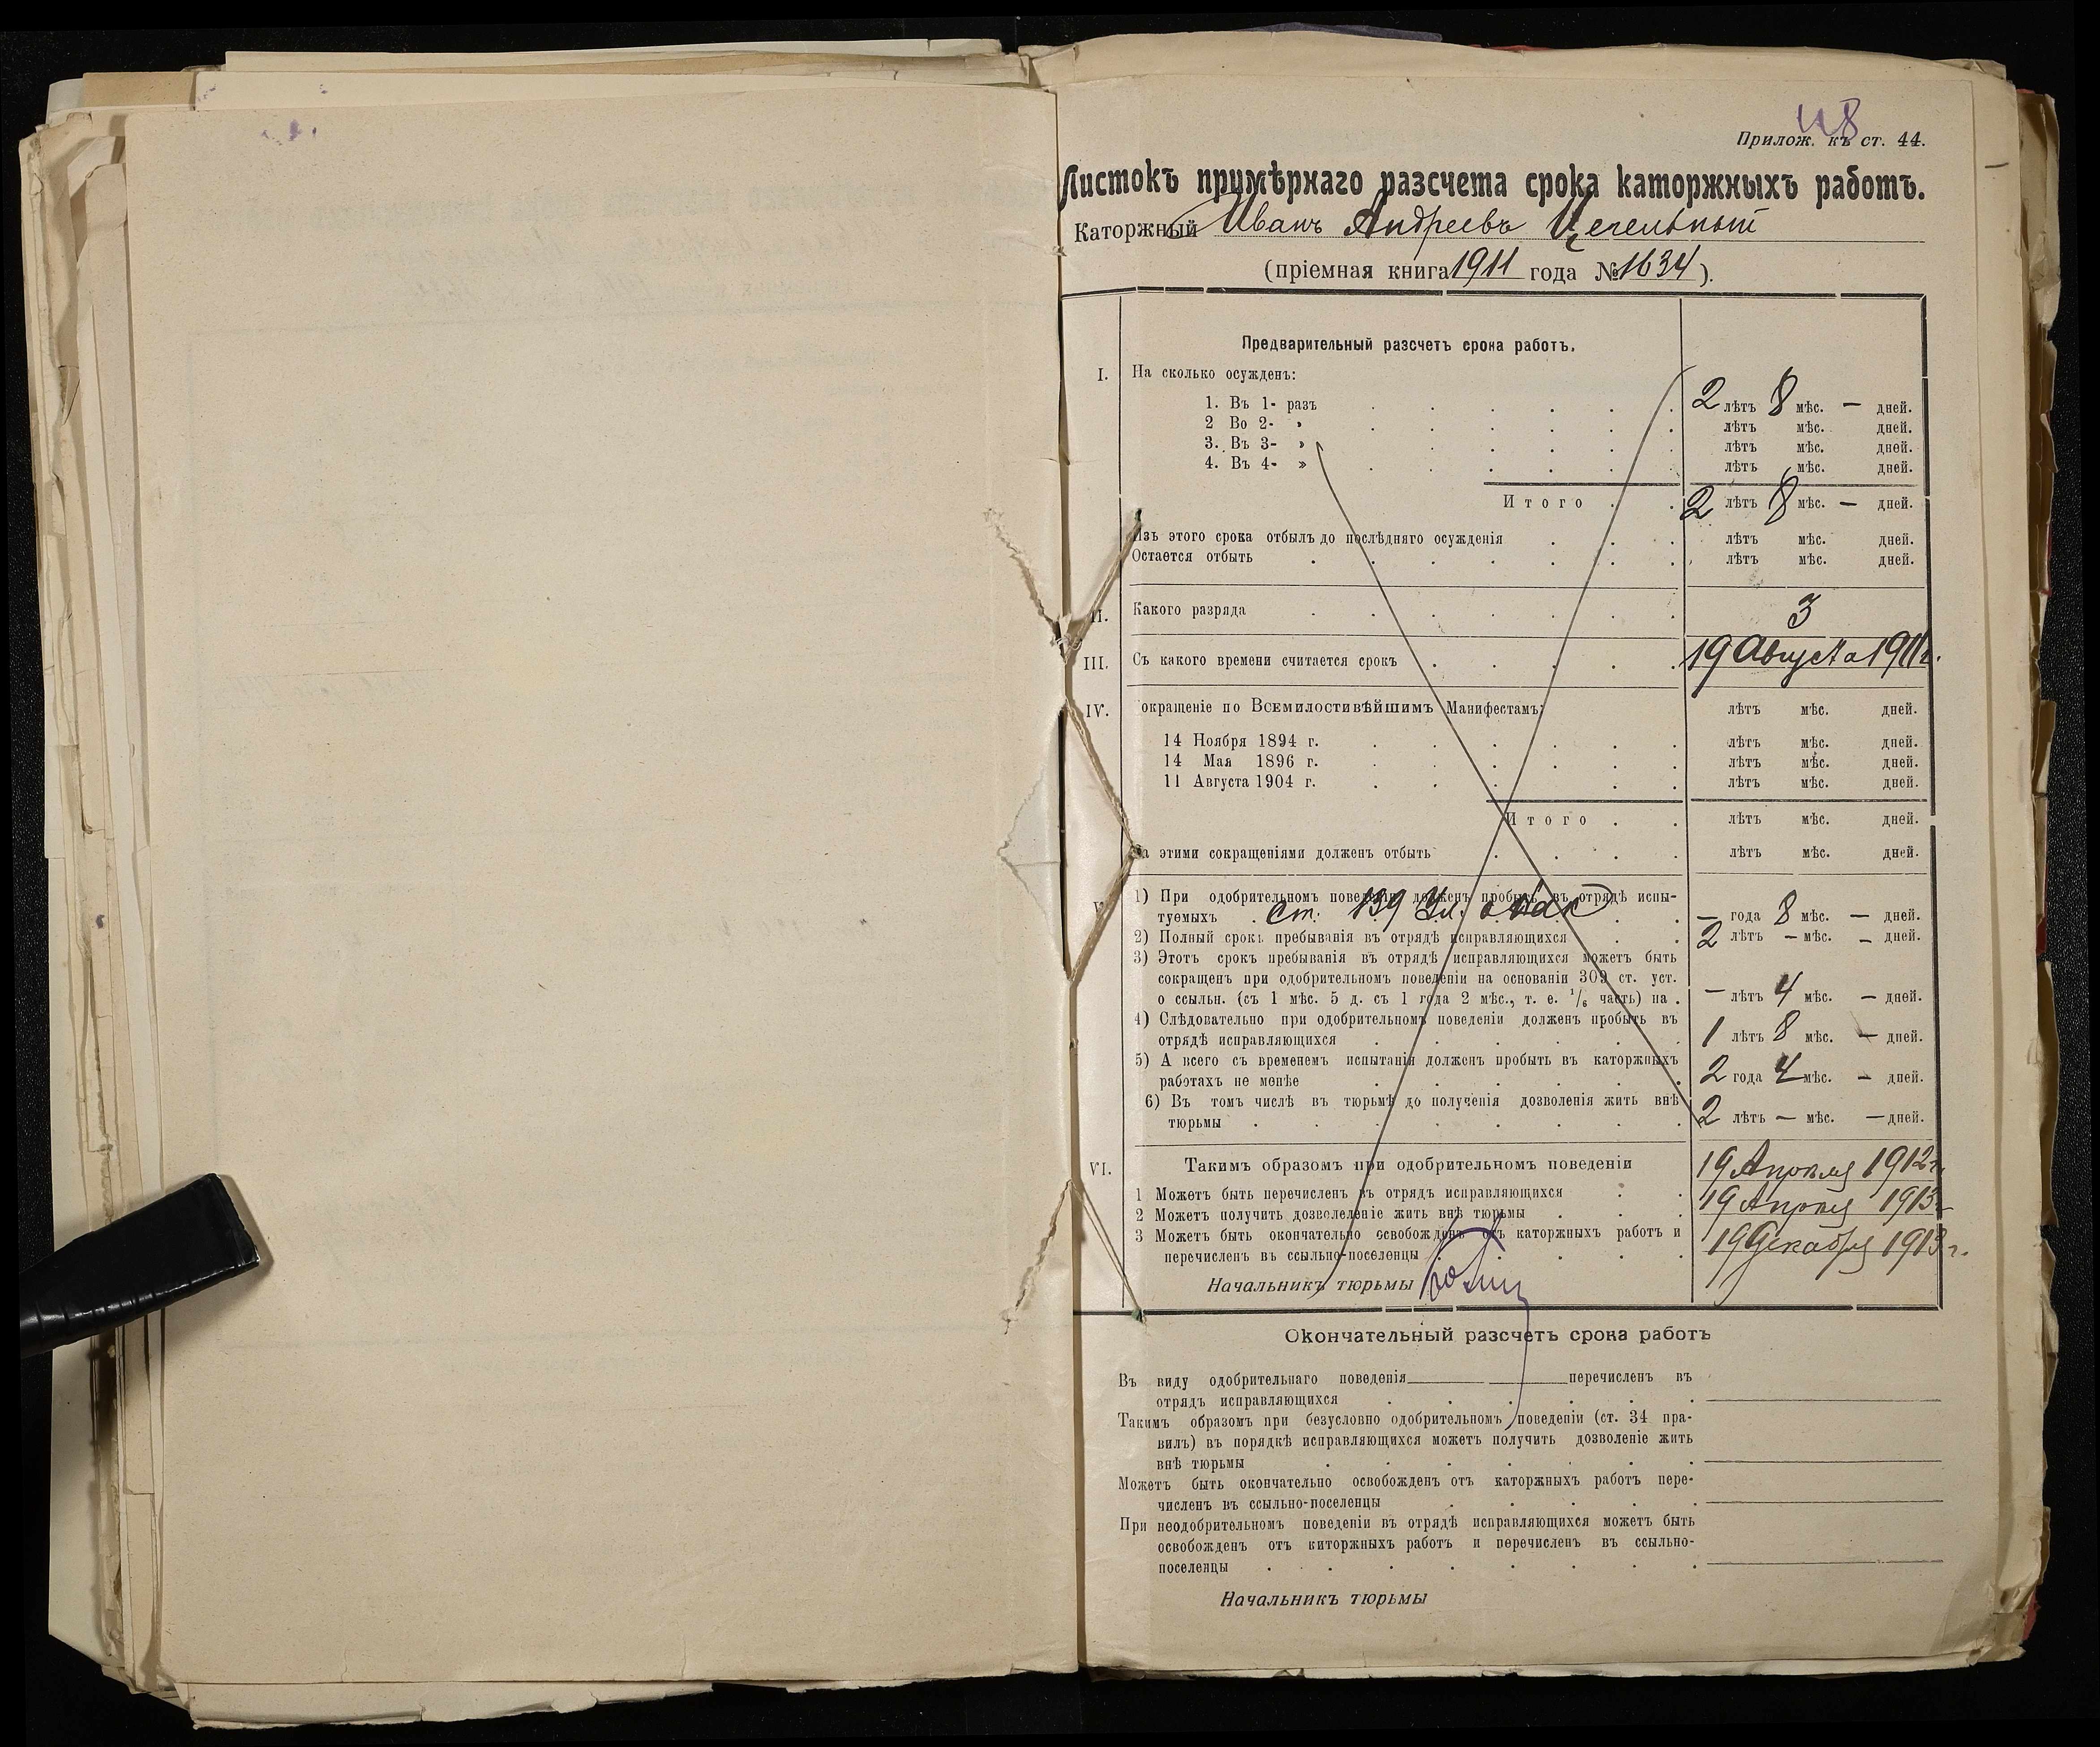 118
Прилож. къ ст. 44.
Листокъ примѣрнаго разсчета срока каторжныхъ работъ.
Каторжный Иванъ Андреевъ
(пріемная книга 1911 года № 1634).
Предварительный разсчетъ срока работъ.
I. На сколько осужденъ:
1. Въ 1- разъ 2 лѣтъ 8 мѣс. — дней.
2 Во 2- » лѣтъ мѣс. дней.
3. Въ 3- » лѣтъ мѣс. дней.
4. Въ 4- » лѣтъ мѣс. дней.
Итого 2 лѣтъ 8 мѣс. — дней.
Изъ этого срока отбылъ до послѣдняго осужденія лѣтъ мѣс. дней.
Остается отбыть лѣтъ мѣс. дней.
II. Какого разряда 3
III. Съ какого времени считается срокъ 19 Августа 1911 г.
IV. окращеніе по Всемилостивѣйшимъ Манифестамъ: лѣтъ мѣс. дней.
14 Ноября 1894 г. лѣтъ мѣс. дней.
14 Мая 1896 г. лѣтъ мѣс. дней.
11 Августа 1904 г. лѣтъ мѣс. дней.
Итого лѣтъ мѣс. дней.
а этими сокращеніями долженъ отбыть лѣтъ мѣс. дней.
V 1) При одобрительномъ поведеніи долженъ пробыть въ отрядѣ испы-
туемыхъ ст. 139 Ул. о нак — года 8 мѣс. — дней.
2) Полный срокъ пребыванія въ отрядѣ исправляющихся 2 лѣтъ — мѣс. — дней.
3) Этотъ срокъ пребыванія въ отрядѣ исправляющихся можетъ быть
сокращенъ при одобрительномъ поведеніи на основаніи 309 ст. уст.
о ссыльн. (съ 1 мѣс. 5 д. съ 1 года 2 мѣс., т. е. 1/6 часть) на — лѣтъ 4 мѣс. — дней.
4) Слѣдовательно при одобрительномъ поведеніи долженъ пробыть въ
отрядѣ исправляющихся 1 лѣтъ 8 мѣс. — дней.
5) А всего съ временемъ испытанія долженъ пробыть въ каторжныхъ
работахъ не менѣе 2 года 4 мѣс. — дней.
6) Въ томъ числѣ въ тюрьмѣ до полученія дозволенія жить внѣ
тюрьмы 2 лѣтъ — мѣс. — дней.
VI. Такимъ образомъ при одобрительномъ поведеніи
1 Можетъ быть перечисленъ въ отрядъ исправляющихся 19 Апрѣля 1912 г.
2 Можетъ получить дозволеленіе жить внѣ тюрьмы 19 Апрѣля 1913 г.
3 Можетъ быть окончательно освобожденъ отъ каторжныхъ работъ и
перечисленъ въ ссыльно-поселенцы 19 Декабря 1913 г.
Начальникъ тюрьмы
Окончательный разсчетъ срока работъ
Въ виду одобрительнаго поведенія перечисленъ въ
отрядъ исправляющихся
Такимъ образомъ при безусловно одобрительномъ поведеніи (ст. 34 пра-
вилъ) въ порядкѣ исправляющихся можетъ получить дозволеніе жить
внѣ тюрьмы
Можетъ быть окончательно освобожденъ отъ каторжныхъ работъ пере-
численъ въ ссыльно-поселенцы
При неодобрительномъ поведеніи въ отрядѣ исправляющихся можетъ быть
освобожденъ отъ киторжныхъ работъ и перечисленъ въ ссыльно-
поселенцы
Начальникъ тюрьмы